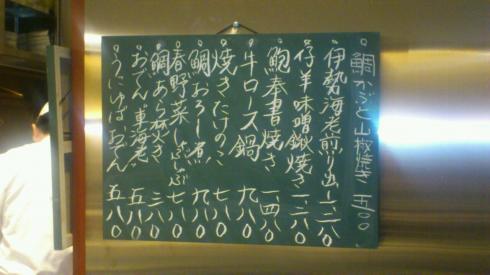 鯛かぶと山椒焼き 一五〇〇
伊勢海老煎り出し 一二八〇
仔羊味噌鍬焼き 一、二八〇
鮑奉書焼き 一、四八〇
牛ロース鍋 九八〇
焼きたけのこ 七八〇
鯛おろし煮 九八〇
春野菜しゃぶしゃぶ 七八〇
鯛あら炊き 三八〇
おでん 車海老 五八〇
うにゆばおでん 五八〇